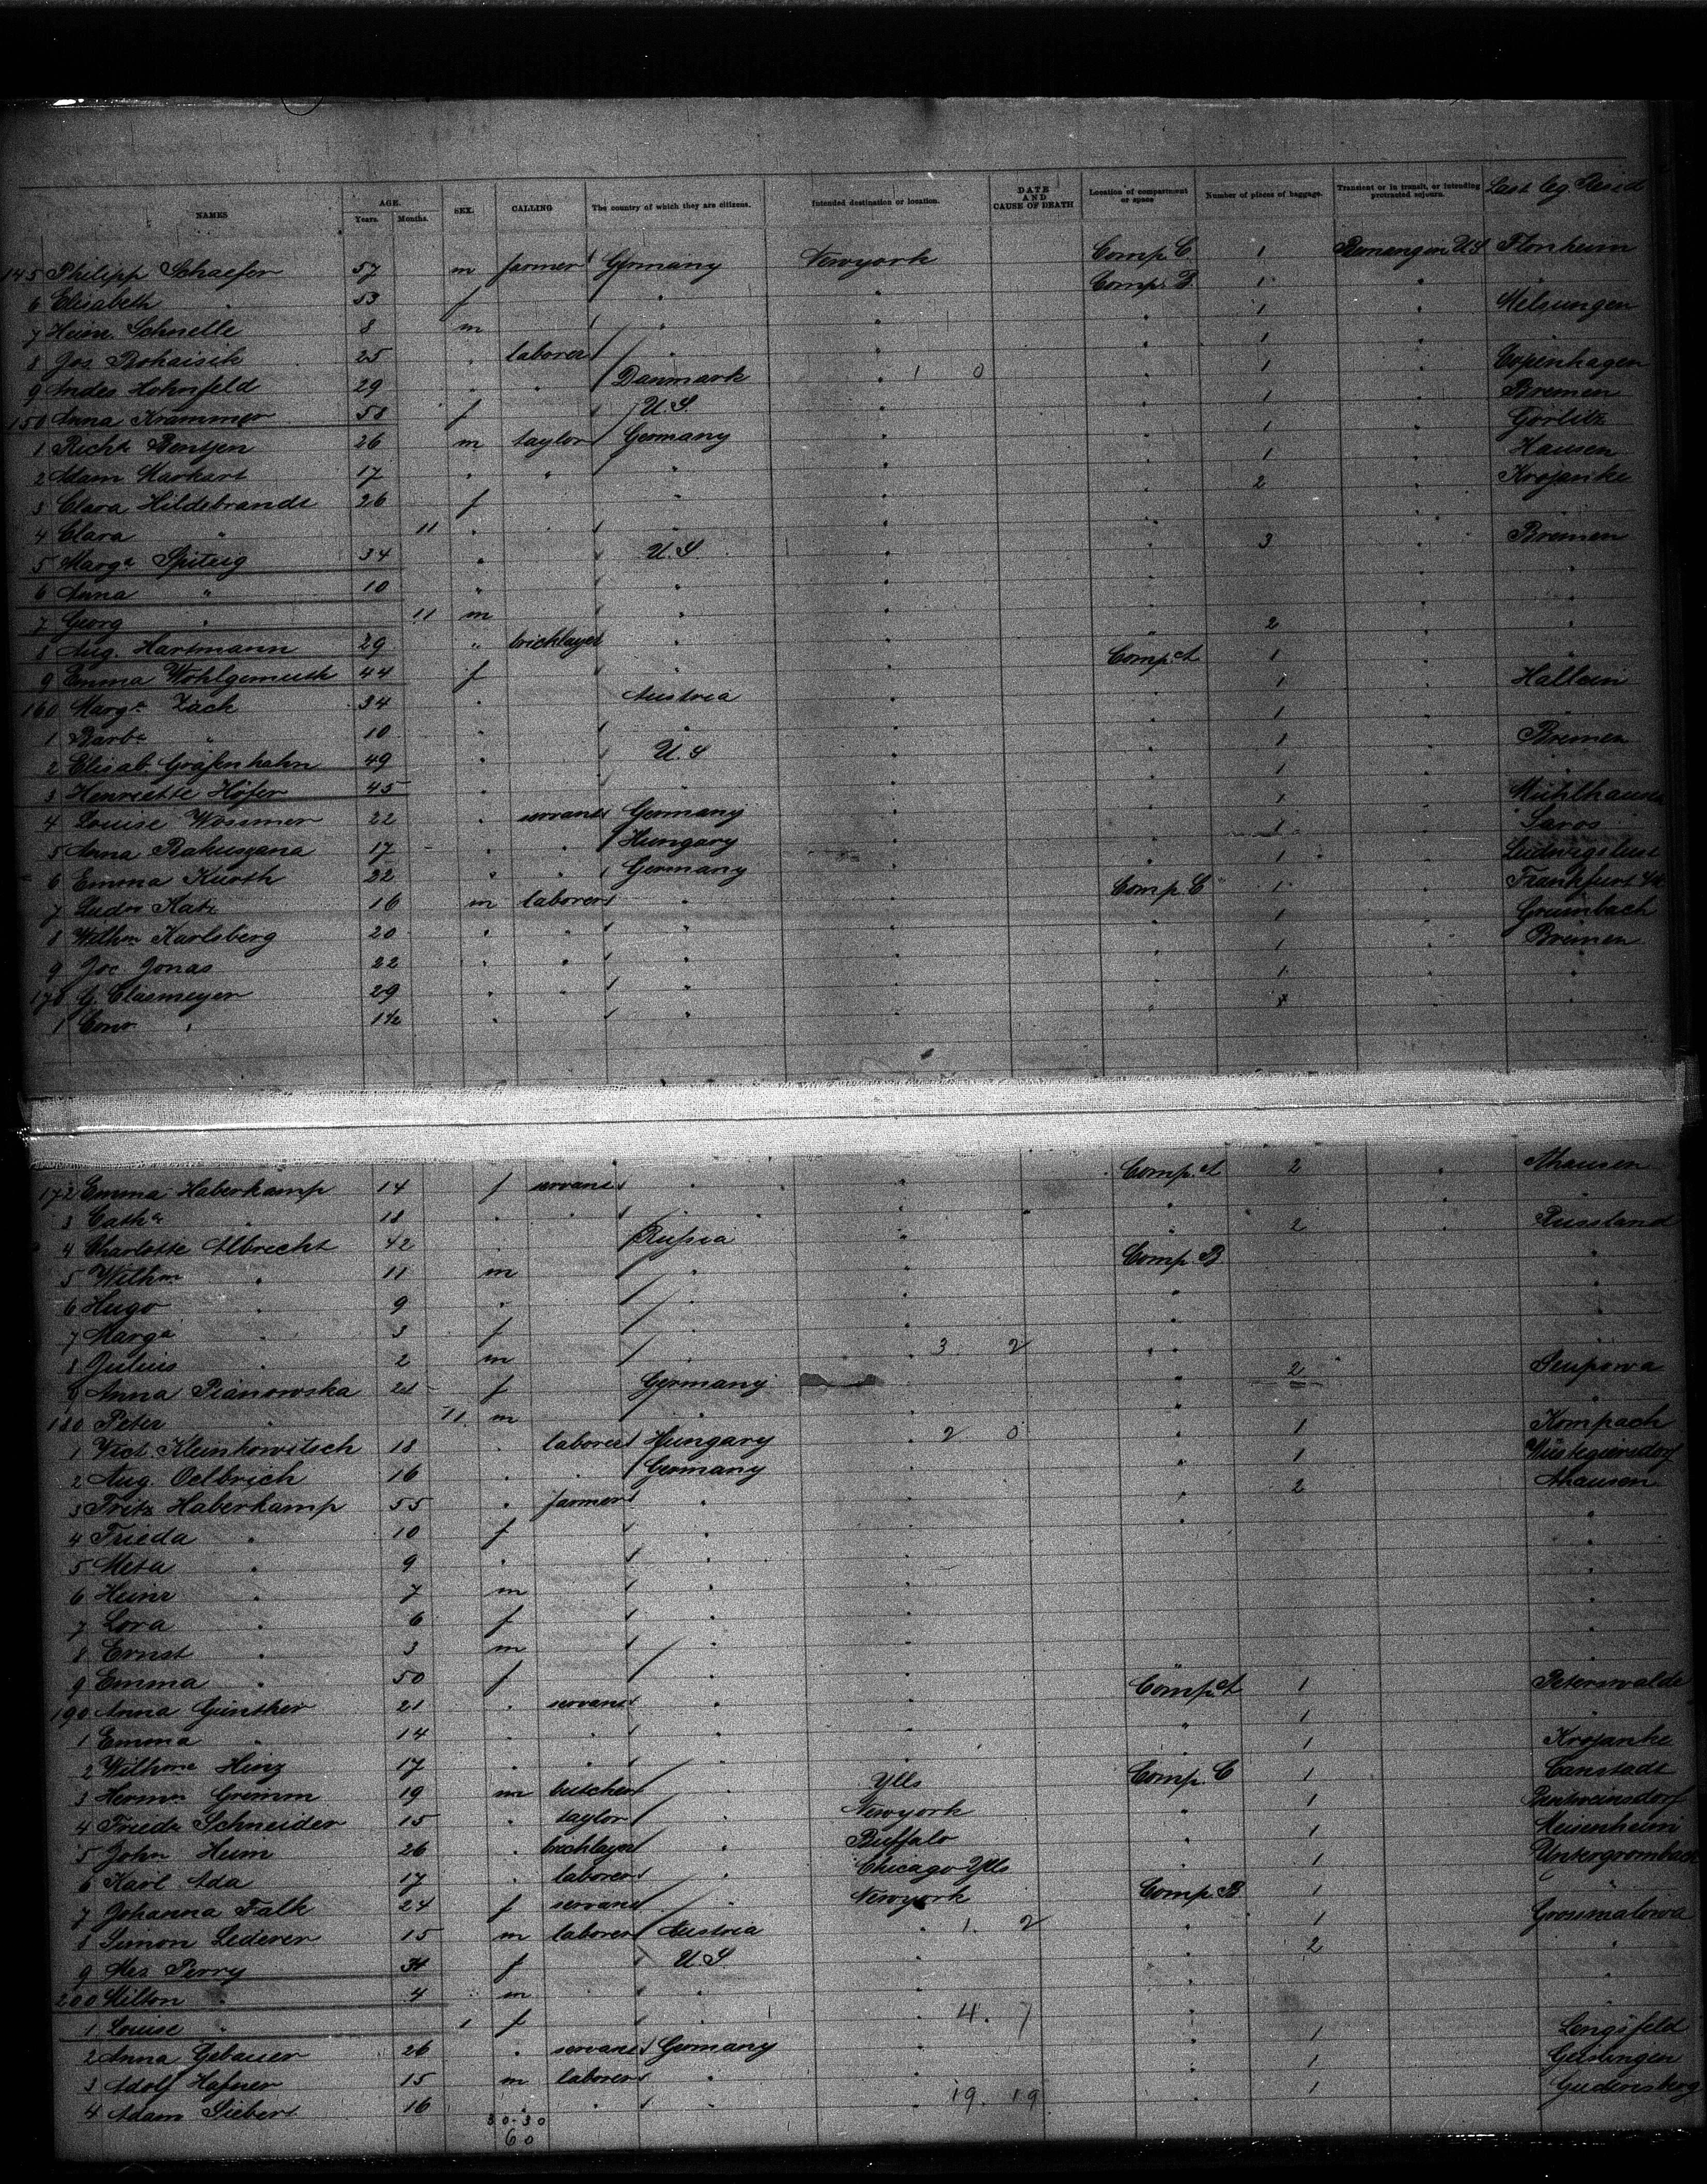 NAMES AGE. Years. Months. SEX. CALLING The country of which they are citizens. Intended destination or location. DATE AND CAUSE OF DEATH Location of compartment or space Number of pieces of baggage. Transient or in transit, or intending protracted sojourn. Last leg. Resid
145 Philipp Schaefer 57 m farmer Germany Newyork Comp. C. 1 U.S. Flonheim
6 Elisabeth " 53 f " " Comp. B 1 "
7 Heinr. Schnelle 8 m " " " 1 " Melsungen
8 Jos. Rohaisik 25 " laborer " " " 1 "
9 Andes Hohnfeld 29 " " Danmark " 1 0 " 1 " Copenhagen
150 Anna Krammer 58 f U.S. " " 1 " Bremen
1 Richd Bentjen 26 m taylor Germany " " 1 " Görlitz
2 Adam Markart 17 " " " " " 1 " Hausen
3 Clara Hildebrandt 26 f " " " 2 " Krojanke
4 Clara " 11 " " " " "
5 Marga Spiteig 34 " U.S. " " 3 " Bremen
6 Anna " 10 " " " " " "
7 Georg " 11 m " " " " "
8 Aug. Hartmann 29 " bricklayer " " " 2 " "
9 Emma Wohlgemuth 44 f " " Comp. A 1 " "
160 Marga Zach 34 " Austria " " 1 " Hallein
1 Barba " 10 " " " " 1 " "
2 Elisab. Gräfenhahn 49 " U.S " " 1 " Bremen
3 Henriette Höfer 45 " " " " 1 " "
4 Louise Wossmer 22 " servant Germany " " 1 " Mühlhausen
5 Anna Rakuszana 17 " " Hungary " " 1 " Saros
6 Emma Kurth 22 " " Germany " " 1 " Ludwigslust
7 Ludw Katz 16 m laborer " " Comp. C 1 " Frankfurt
8 Wilhm Karlsberg 20 " " " " " 1 " Grumbach
9 Joc Jonas 22 " " " " " 1 " Bremen
170 G. Clasmeyer 29 " " " " " 1 " "
1 Conr " 1½ " " " " " "
172 Emma Haberkamp 14 f servant " " Comp. A 2 " Ahausen
3 Catha " 18 " " " " " " "
4 Charlotte Albrecht 42 " Russia " " 2 " Russland
5 Wilhm " 11 m " " Comp. B "
6 Hugo " 9 " " " " "
7 Marga " 3 f " " " "
8 Julius " 2 m " " 3 2 " "
9 Anna Pianowska 24 f Germany " 2 Seupowa
180 Peter " 11 m " " " "
1 Vict. Kleinkowitsch 18 " laborer Hungary " 2 0 " 1 Kompach
2 Aug. Oelbrich 16 " " Germany " " 1 Wüstegiersdorf
3 Fritz Haberkamp 55 " farmer " " " 2 Ahausen
4 Frieda " 10 f " " " "
5 Meta " 9 " " " "
6 Heinr " 7 m " " "
7 Lora " 6 f " " "
8 Ernst " 3 m " " "
9 Emma " 50 f " " "
190 Anna Günther 21 " servant " " Comp. A 1 Peterswalde
1 Emma " 14 " " " " " 1 "
2 Wilhme Hinz 17 " " " " " 1 Krojanke
3 Herm. Grimm 19 m butcher " Ylls Comp. C 1 Canstadt
4 Friedr Schneider 15 " taylor " Newyork " 1
5 John Heim 26 " bricklayer " Buffalo " 1 Meisenheim
6 Karl Ada 17 " laborer " Chicago Ylls " 1 Untergrombach
7 Johanna Falk 24 f servant " Newyork Comp. B 1 "
8 Simon Lederer 15 m laborer Austria " 1. 2 " 1 Grossmalowa
9 Mrs Perry 34 f U.S " " 2 "
200 Milton " 4 m " " " "
1 Louise " 1 f " " 4. 7 "
2 Anna Gebauer 26 " servant Germany " " 1 Lengsfeld
3 Adolf Hafner 15 m laborer " " " 1 Geislingen
4 Adam Siebert 16 " " " " 19. 19 " 1 Gudensberg
30-30
60